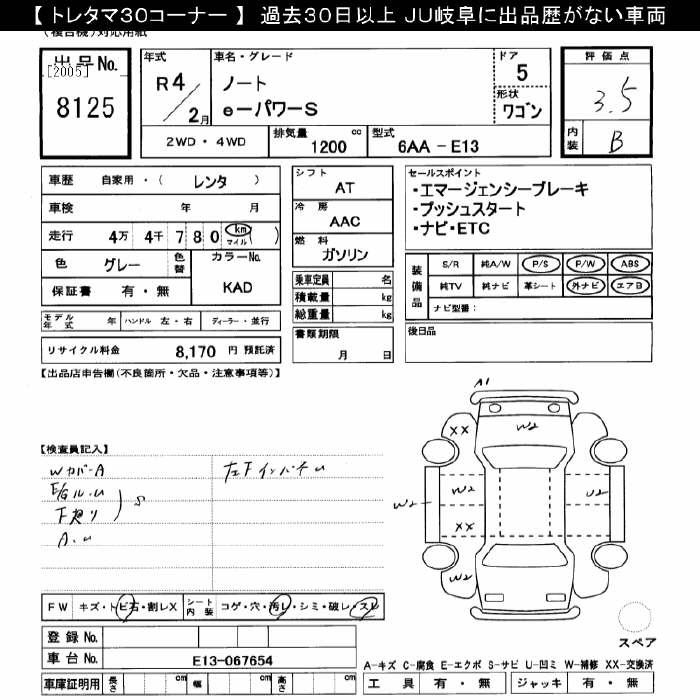 【 トレタマ30コーナー 】 過去30日以上 JU岐阜に出品歴がない車両
(複合機)対応用紙
出品No.
[2005]
8125
年式
R4/2月
車名・グレード
ノート
e－パワーS
ドア
5
形状
ワゴン
2WD ・ 4WD
排気量 1200 cc
型式 6AA － E13
評価点
3.5
内装 B
車歴 自家用・( レンタ )
車検 年 月
走行 4万 4千 7 8 0 km マイル ( )
色 グレー 色替
カラーNo.
KAD
保証書 有・無
モデル年式 年 ハンドル 左・右 ディーラー・並行
リサイクル料金 8,170 円 預託済
シフト
AT
冷房
AAC
燃料
ガソリン
乗車定員 名
積載量 kg
総重量 kg
書類期限
月 日
セールスポイント
・エマージェンシーブレーキ
・プッシュスタート
・ナビ・ETC
装備品
S/R 純A/W P/S P/W ABS
純TV 純ナビ 革シート 外ナビ エアB
ナビ型番：
後日品
【出品店申告欄(不良箇所・欠品・注意事項等)】
【検査員記入】
Wカバ-A
E/Gル.u
下廻り
S
A.u
左下インパネu
A1
W2
XX
W2
W2
XX
U2
W2
FW キズ・トビ石・割レX
シート内装 コゲ・穴・汚レ・シミ・破レ・スレ
登録 No.
車台 No. E13-067654
車庫証明用 長さ cm 幅 cm 高さ cm
スペア
A-キズ C-腐食 E-エクボ S-サビ U-凹ミ W-補修 XX-交換済
工具 有・無 ジャッキ 有・無